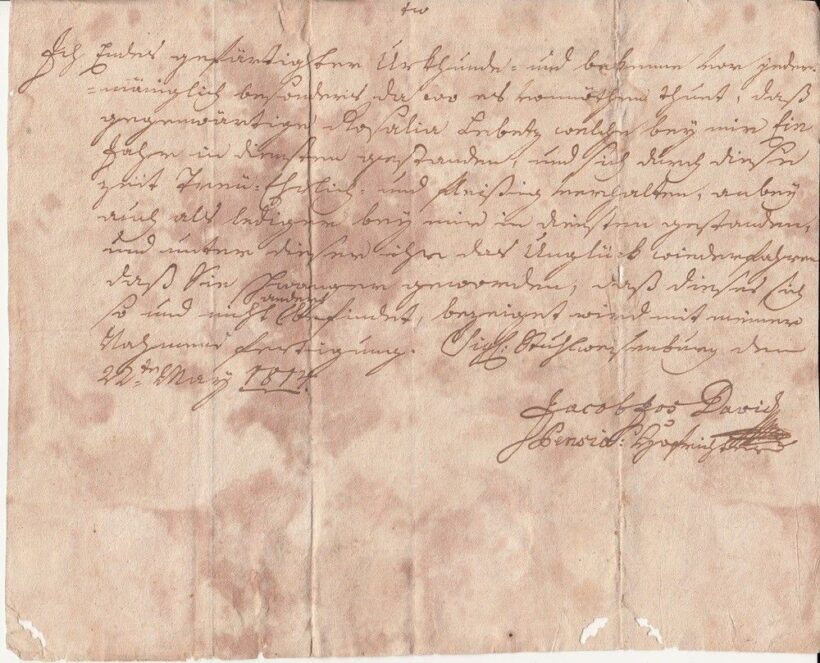 Ich Endes gefärtigter Urkhunde: und bekenne vor jeder:
=mäniglich besonders da wo es vonnöthen thuet, daß
gegenwärtige Rosalia Lebetz welche bey mir Ein
Jahr in diensten gestanden, und sich durch diese
zeit Treü: Ehrlich: und fleißig verhalten, anbey
auch als lediger bey mir in diensten gestanden,
und unter dieser ihr das Unglück wiederfahren
daß Sie Schwanger geworden, daß dieses sich
so und nicht anders befindet, bezeiget wird mit meiner
Nahmens fertigung. Sigl: Stuhlweisenburg den
22ten May 1814.
Jacob Jos David
Pensio: